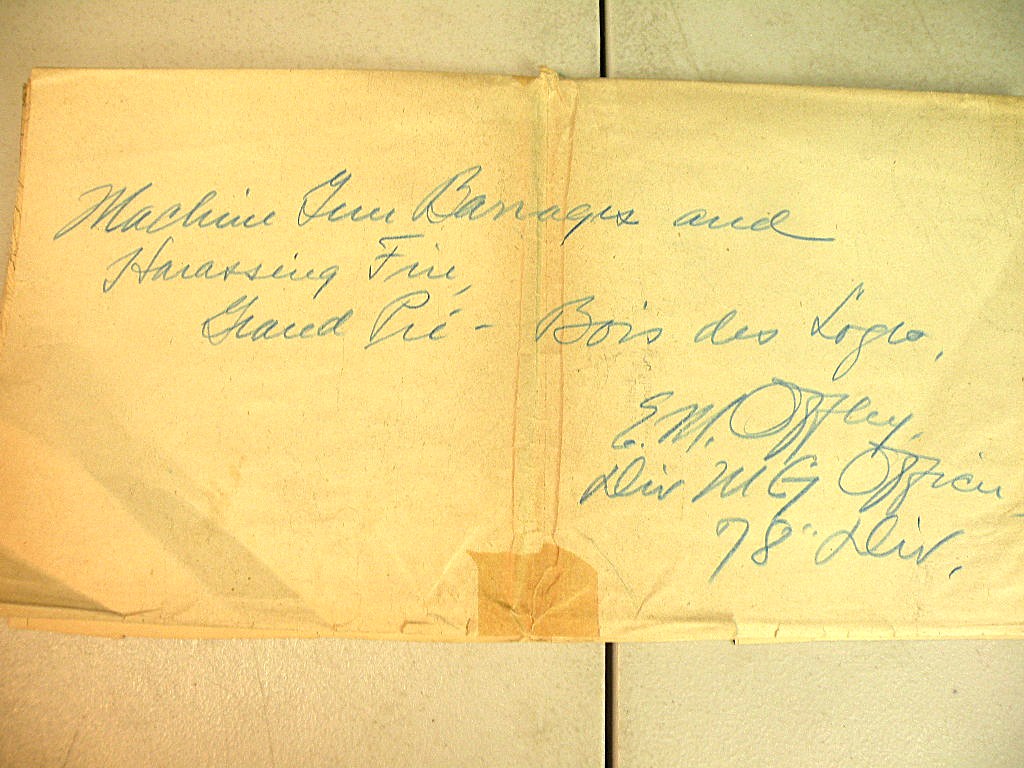 Machine Gun Barrages and
Harassing Fire,
Grand Pré - Bois des Loges.
E. M. Offley,
Div MG Officer
78" Div.